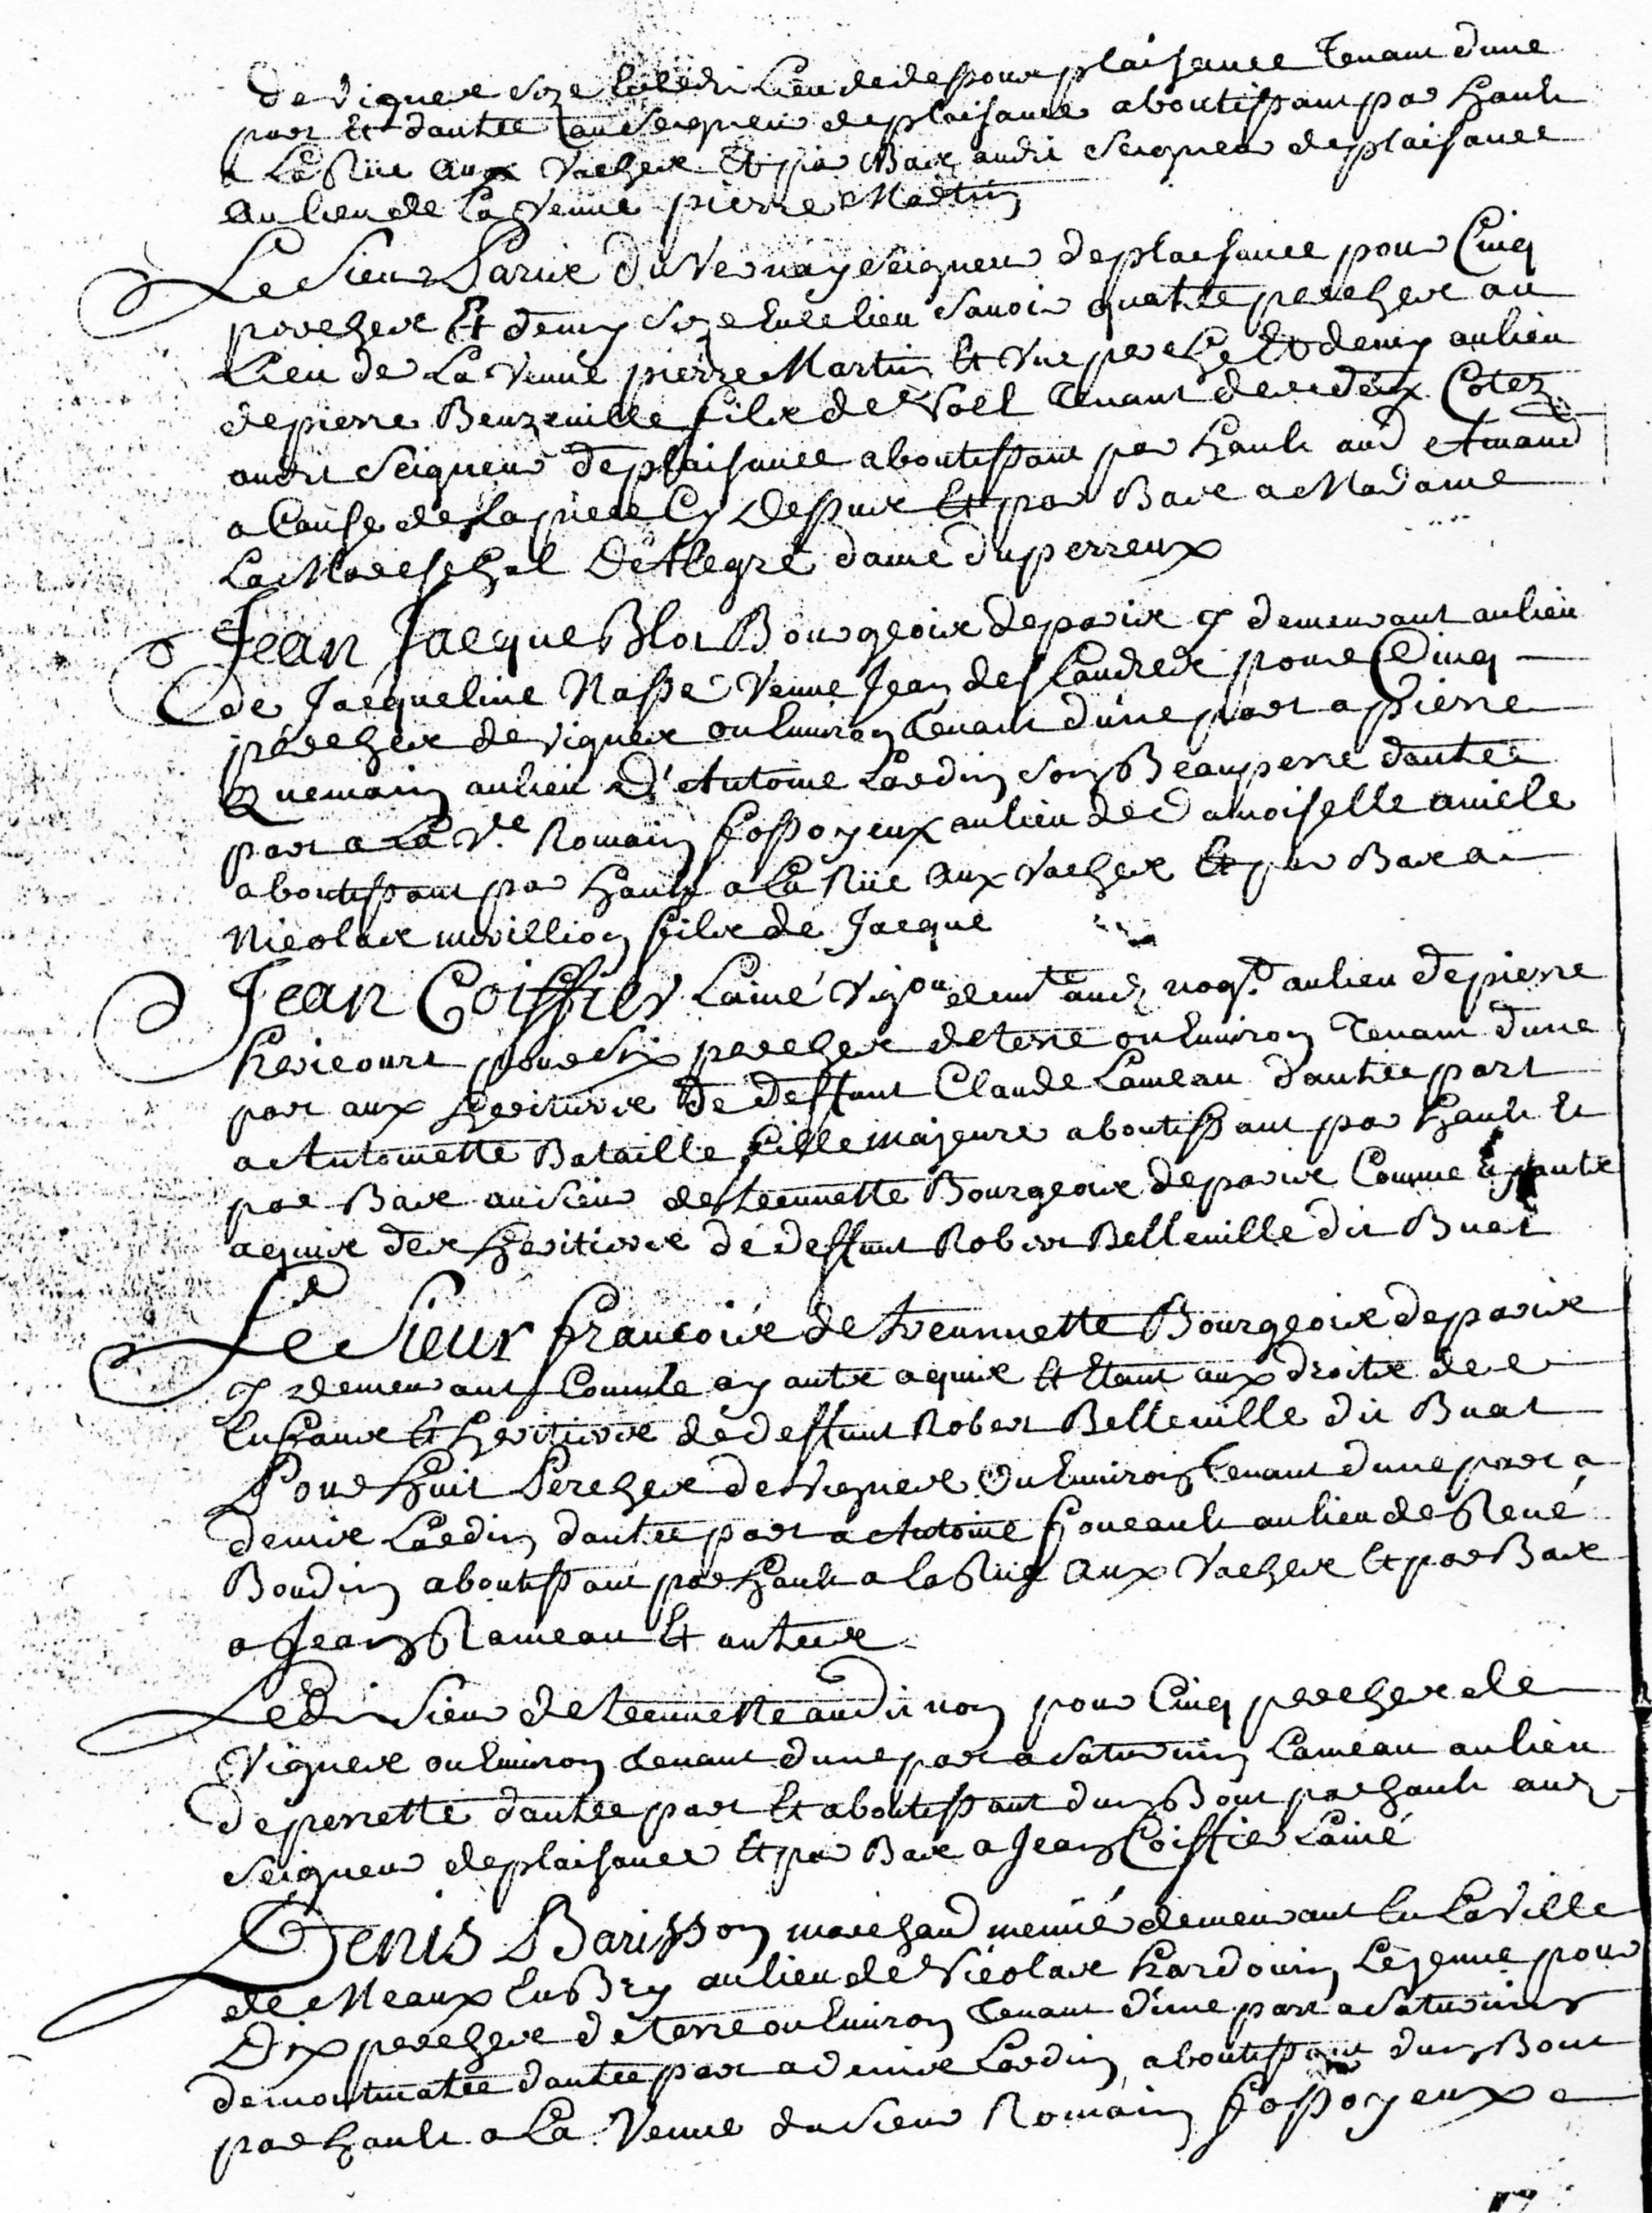 de vignes size ledit lieu de dessous plaisance Tenant dune
part Et dautre audit seigneur de plaisance aboutissant par hault
a La Rüe aux Vaches Et par Bas audit seigneur de plaisance
au lieu de La Veuve pierre Martin
Le sieur Paris du Vernay seigneur de plaisance pour Cinq
perches Et demy size Ence lieu savoir quatre perches au
Lieu de La Veuve pierre Martin Et Une perche Et demy au lieu
de pierre Beuzeville fils de Noël Tenant des deux Cotez
audit seigneur de plaisance aboutissant par hault aud
a Cause de La piece Cy dessus Et par Bas a Madame
La Mareschal D'Alegre dame du perreux
Jean Jacque Blot Bourgeois de paris y demeurant au lieu
de Jacqueline Nassé Veuve Jean des Landres pour Cinq
perches de vignes ou Environ Tenant d'une part a pierre
Quemain au lieu D'Antoine Lardin son Beaupere dautre
part a La Ve. Romain fossoyeux au lieu de Damoiselle
aboutissant par hault a La Rüe aux Vaches Et par Bas a
Nicolas fils de Jacque
Jean Coiffier Lainé Vigon demt aud nogt. au lieu de pierre
hericourt pour six perches de terre ou Environ Tenant dune
part aux heritiers de deffunt Claude Lameau dautre part
a Antoinette Bataille fille majeure aboutissant par hault Et
par Bas au sieur de Bourgeois de paris Comme ayant
aquis des heritiers de deffunt Robert Belleville dit Buat
Le Sieur francois de Bourgeois de paris
y demeurant Comme ayant aquis Et Etant aux droits des
Enfans Et heritiers de deffunt Robert Belleville dit Buat
Pour huit Perches de Vignes Ou Environ Tenant dune part a
denis Lardin dautre part a Antoine foucault au lieu de René
Boudin aboutissant par hault a la Rüe aux Vaches Et par Bas
a Jean Rameau Et autres
Ledit sieur de audit nom pour Cinq perches de
Vignes ou Environ Tenant dune part a saturnin Lameau au lieu
de perrette dautre part Et aboutissant dun Bout par hault aud
seigneur de plaisance Et par Bas a Jean Coiffier Lainé
Denis Barisson marchand demeurant En La Ville
de Meaux En Bry au lieu de Nicolas hardouin Lejeune pour
Dix perches de terre ou Environ Tenant d'une part a saturnin
dautre part a denis Lardin aboutissant dun Bout
par hault a La Veuve du sieur Romain fossoyeux